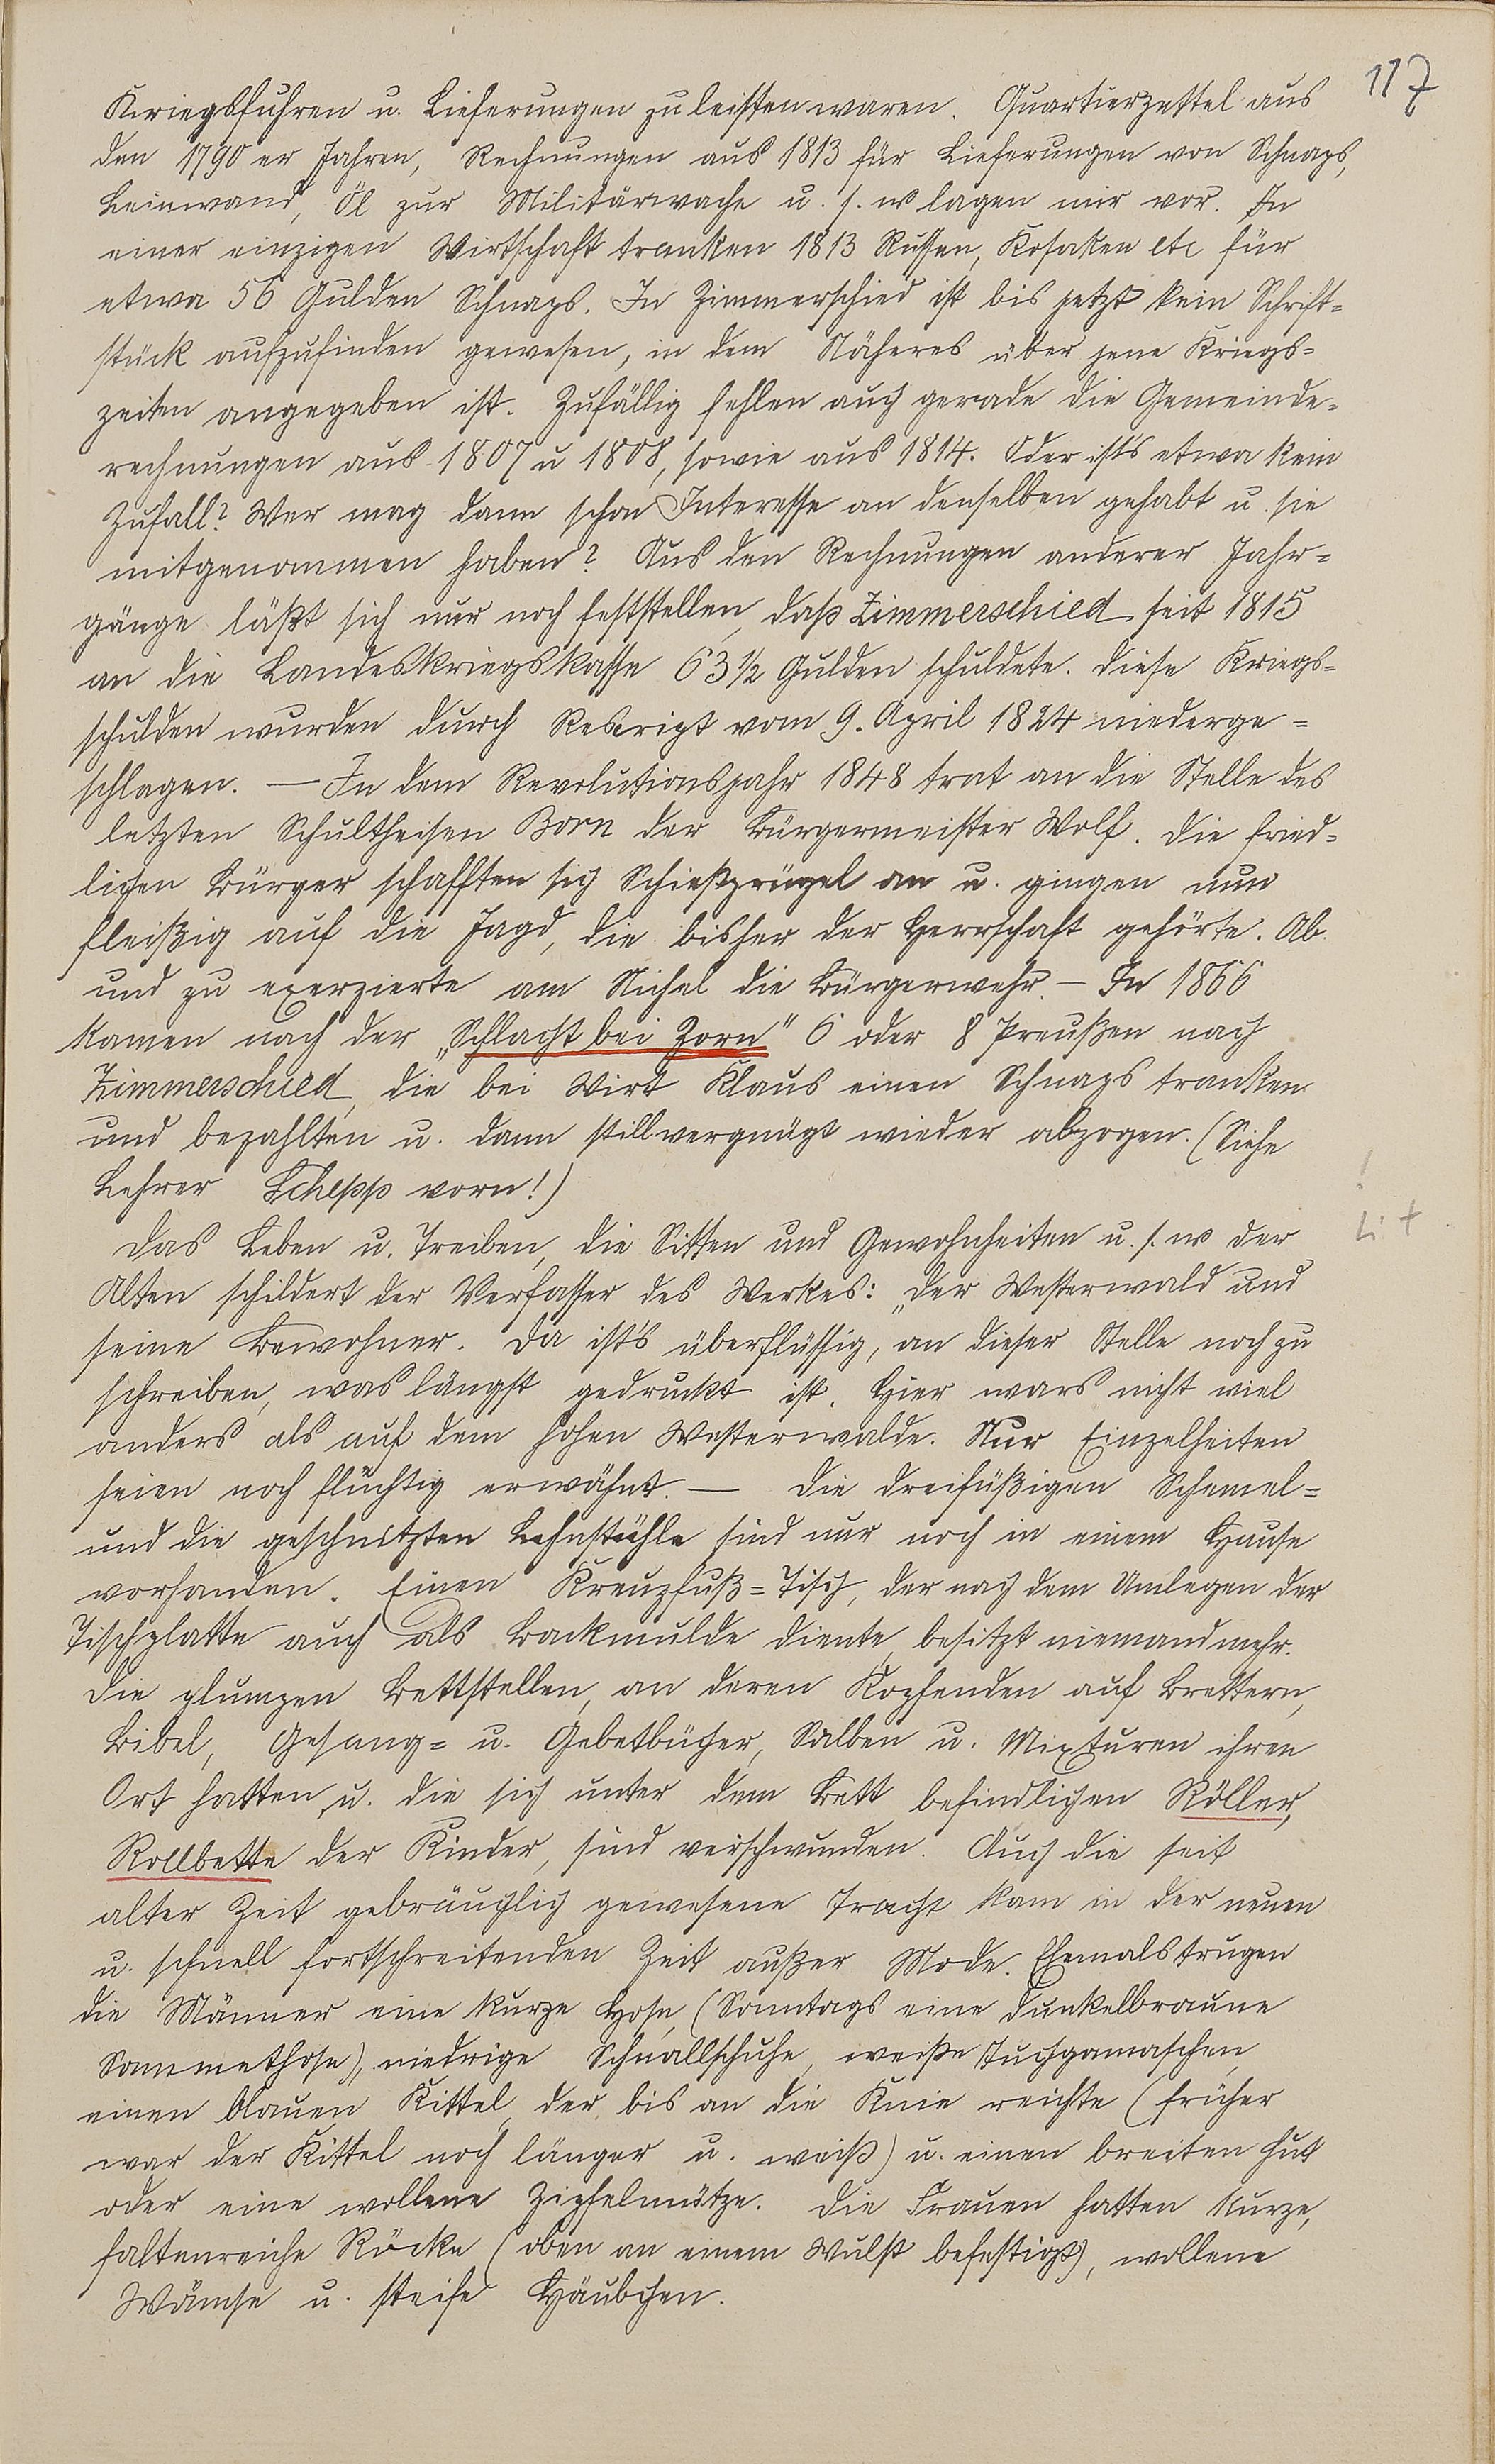 117
Kriegsfuhren u. Lieferungen zu leisten waren. Quartierzettel aus
den 1790 er Jahren, Rechnungen aus 1813 für Lieferungen von Schnaps,
Leinwand, Öl zur Militärwache u. s. w lagen mir vor. In
einer einzigen Wirtschaft tranken 1813 Russen, Kosaken etc für
etwa 56 Gulden Schnaps. In Zimmerschied ist bis jetzt kein Schrift=
stück aufzufinden gewesen, in dem Näheres über jene Kriegs=
zeiten angegeben ist. Zufällig fehlen auch gerade die Gemeinde=
rechnungen aus 1807 u 1808, sowie aus 1814. Oder ists etwa kein
Zufall? Wer mag dann schon Interesse an denselben gehabt u. sie
mitgenommen haben? Aus den Rechnungen anderer Jahr=
gänge läßt sich nur noch feststellen, daß Zimmerschied seit 1815
an die Landeskriegskasse 63 1/2 Gulden schuldete. Diese Kriegs=
schulden wurden durch Rescript vom 9. April 1824 niederge=
schlagen. — In dem Revolutionsjahr 1848 trat an die Stelle des
letzten Schultheisen Born der Bürgermeister Wolf. Die fried=
lichen Bürger schafften sich Schießprügel an u. gingen nun
fleißig auf die Jagd, die bisher der Herrschaft gehörte. Ab
und zu exerzierte am Nichel die Bürgerwehr. — In 1866
kamen nach der „Schlacht bei Zorn" 6 oder 8 Preußen nach
Zimmerschied, die bei Wirt Klaus einen Schnaps tranken
und bezahlten u. dann stillvergnügt wieder abzogen. (Siehe
Lehrer Schepp vorn!)
!
Lit
Das Leben u. Treiben, die Sitten und Gewohnheiten u. s. w der
Alten schildert der Verfasser des Werkes: „Der Westerwald und
seine Bewohner. Da ists überflüssig, an dieser Stelle noch zu
schreiben, was längst gedruckt ist. Hier wars nicht viel
anders als auf dem hohen Westerwalde. Nur Einzelheiten
seien noch flüchtig erwähnt. — Die dreifüßigen Schemel=
und die geschnitzten Lehnstühle sind nur noch in einem Hause
vorhanden. Einen Kreuzfuß=Tisch, der nach dem Umlegen der
Tischplatte auch als Backmulde diente, besitzt niemand mehr.
Die plumpen Bettstellen, an deren Kopfenden auf Brettern,
Bibel, Gesang= u. Gebetbücher, Salben u. Mixturen ihren
Ort hatten, u. die sich unter dem Bett befindlichen Röller,
Rollbette der Kinder, sind verschwunden. Auch die seit
alter Zeit gebräuchlich gewesene Tracht kam in der neuen
u. schnell fortschreitenden Zeit außer Mode. Ehemals trugen
die Männer eine kurze Hose, (Sonntags eine dunkelbraune
Sammethose), niedrige Schnallschuhe, weiße Tuchgamaschen,
einen blauen Kittel, der bis an die Knie reichte (früher
war der Kittel noch länger u. weiß) u. einen breiten Hut
oder eine wollene Zipfelmütze. Die Frauen hatten kurze,
faltenreiche Röcke (oben an einem Wulst befestigt), wollene
Wämse u. steife Häubchen.